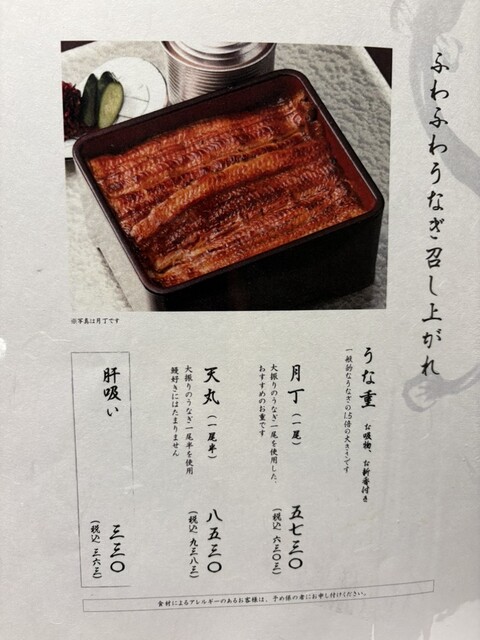 ふわふわうなぎ召し上がれ
※写真は月丁です
うな重 お吸物、お新香付き
一般的なうなぎの1.5倍の大きさです
月丁（一尾） 五七三〇
大振りのうなぎ一尾を使用した、
おすすめのお重です
（税込 六三〇三）
天丸（一尾半） 八五三〇
大振りのうなぎ一尾半を使用
鰻好きにはたまりません
（税込 九三八三）
肝吸い 三三〇
（税込 三六三）
食材によるアレルギーのあるお客様は、予め係の者にお申し付けください。